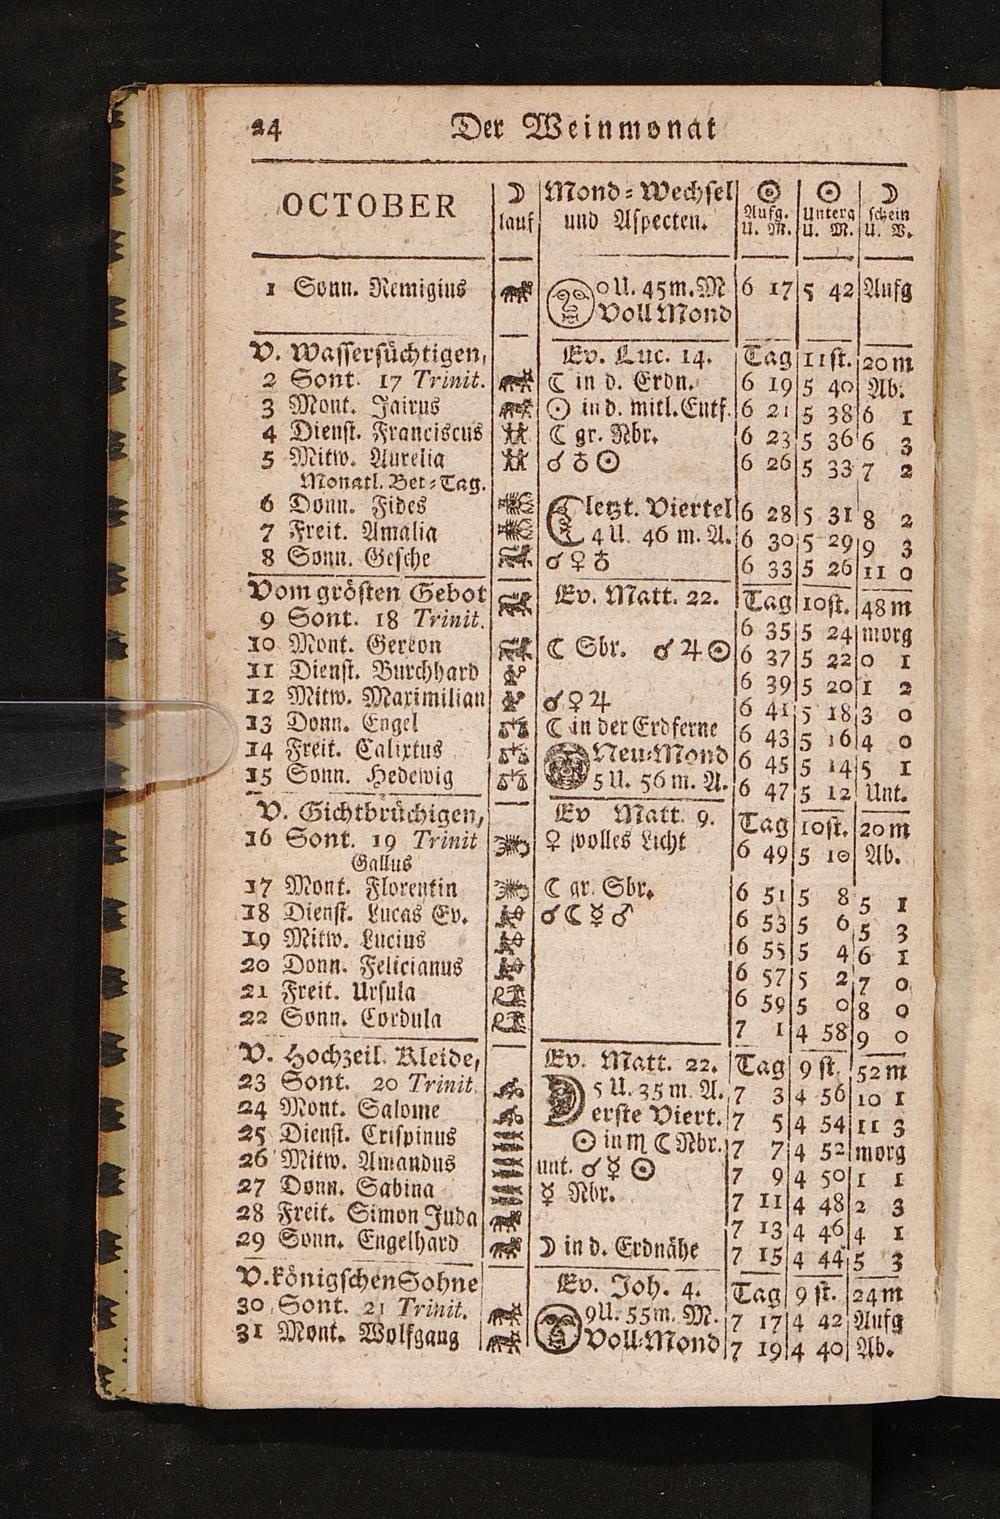 24 Der Weinmonat
OCTOBER ☽ lauf Mond-Wechsel und Aspecten. ☉ Aufg. U. M. ☉ Unterg U. M. ☽ schein U. V.
1 Sonn. Remigius 0 U. 45 m. M 6 17 5 42 Aufg
Voll Mond
V. Wassersüchtigen, Ev. Luc. 14. Tag 11 st. 20 m
2 Sont. 17 Trinit. ☾ in d. Erdn. 6 19 5 40 Ab.
3 Mont. Jairus ☉ in d. mitl. Entf. 6 21 5 38 6 1
4 Dienst. Franciscus ☾ gr. Nbr. 6 23 5 36 6 3
5 Mitw. Aurelia ☌ ♁ ☉ 6 26 5 33 7 2
Monatl. Bet-Tag.
6 Donn. Fides ☾ letzt. Viertel 6 28 5 31 8 2
7 Freit. Amalia 4 U. 46 m. A. 6 30 5 29 9 3
8 Sonn. Gesche ☌ ♀ ♁ 6 33 5 26 11 0
Vom grösten Gebot Ev. Matt. 22. Tag 10 st. 48 m
9 Sont. 18 Trinit. 6 35 5 24 morg
10 Mont. Gereon ☾ Sbr. ☌ ♃ ☉ 6 37 5 22 0 1
11 Dienst. Burchhard 6 39 5 20 1 2
12 Mitw. Maximilian ☌ ♀ ♃ 6 41 5 18 3 0
13 Donn. Engel ☾ in der Erdferne 6 43 5 16 4 0
14 Freit. Calixtus Neu-Mond 6 45 5 14 5 1
15 Sonn. Hedewig 5 U. 56 m. A. 6 47 5 12 Unt.
V. Gichtbrüchigen, Ev Matt. 9. Tag 10 st. 20 m
16 Sont. 19 Trinit ♀ volles Licht 6 49 5 10 Ab.
Gallus
17 Mont. Florentin ☾ gr. Sbr. 6 51 5 8 5 1
18 Dienst. Lucas Ev. ☌ ☾ ☿ ♂ 6 53 5 6 5 3
19 Mitw. Lucius 6 55 5 4 6 1
20 Donn. Felicianus 6 57 5 2 7 0
21 Freit. Ursula 6 59 5 0 8 0
22 Sonn. Cordula 7 1 4 58 9 0
V. Hochzeil. Kleide, Ev. Matt. 22. Tag 9 st. 52 m
23 Sont. 20 Trinit. ☽ 5 U. 35 m. A. 7 3 4 56 10 1
24 Mont. Salome erste Viert. 7 5 4 54 11 3
25 Dienst. Crispinus ☉ in ♏ ☾ Nbr. 7 7 4 52 morg
26 Mitw. Amandus unt. ☌ ☿ ☉ 7 9 4 50 1 1
27 Donn. Sabina ☿ Nbr. 7 11 4 48 2 3
28 Freit. Simon Juda 7 13 4 46 4 1
29 Sonn. Engelhard ☽ in d. Erdnähe 7 15 4 44 5 3
V. königschen Sohne Ev. Joh. 4. Tag 9 st. 24 m
30 Sont. 21 Trinit. 9 U. 55 m. M. 7 17 4 42 Aufg
31 Mont. Wolfgang Voll-Mond 7 19 4 40 Ab.